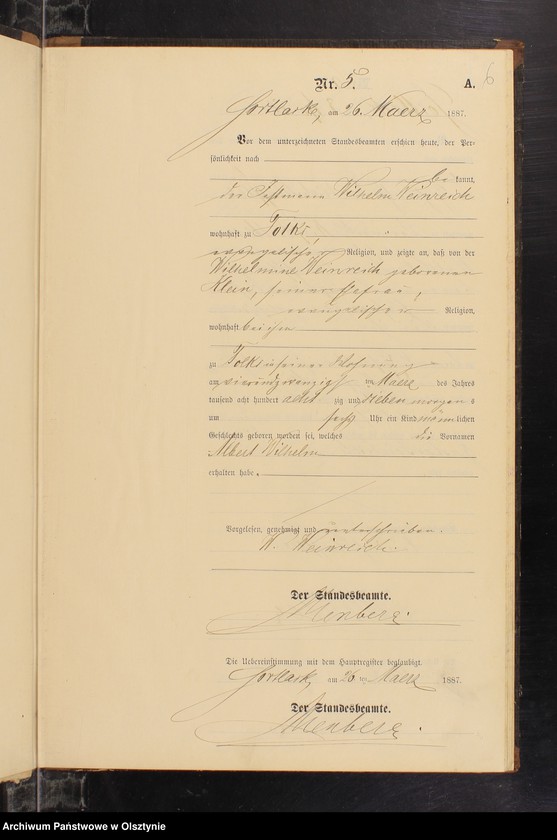 6
Nr. 5. A.
Gortlack, am 26. Maerz 1887.
Vor dem unterzeichneten Standesbeamten erschien heute, der Per-
sönlichkeit nach
be kannt,
der Instmann Wilhelm Weinreich
wohnhaft zu Tolks
evangelischer Religion, und zeigte an, daß von der
Wilhelmine Weinreich geborenen
Klein, seiner Ehefrau,
evangelischer Religion,
wohnhaft bei ihm
zu Tolks in seiner Wohnung
am vierundzwanzigsten Maerz des Jahres
tausend acht hundert acht zig und sieben morgens
um sechs Uhr ein Kind männlichen
Geschlechts geboren worden sei, welches die Vornamen
Albert Wilhelm
erhalten habe.
Vorgelesen, genehmigt und unterschrieben.
W. Weinreich.
Der Standesbeamte.
Die Uebereinstimmung mit dem Hauptregister beglaubigt.
Gortlack, am 26 ten Maerz 1887.
Der Standesbeamte.
Archiwum Państwowe w Olsztynie